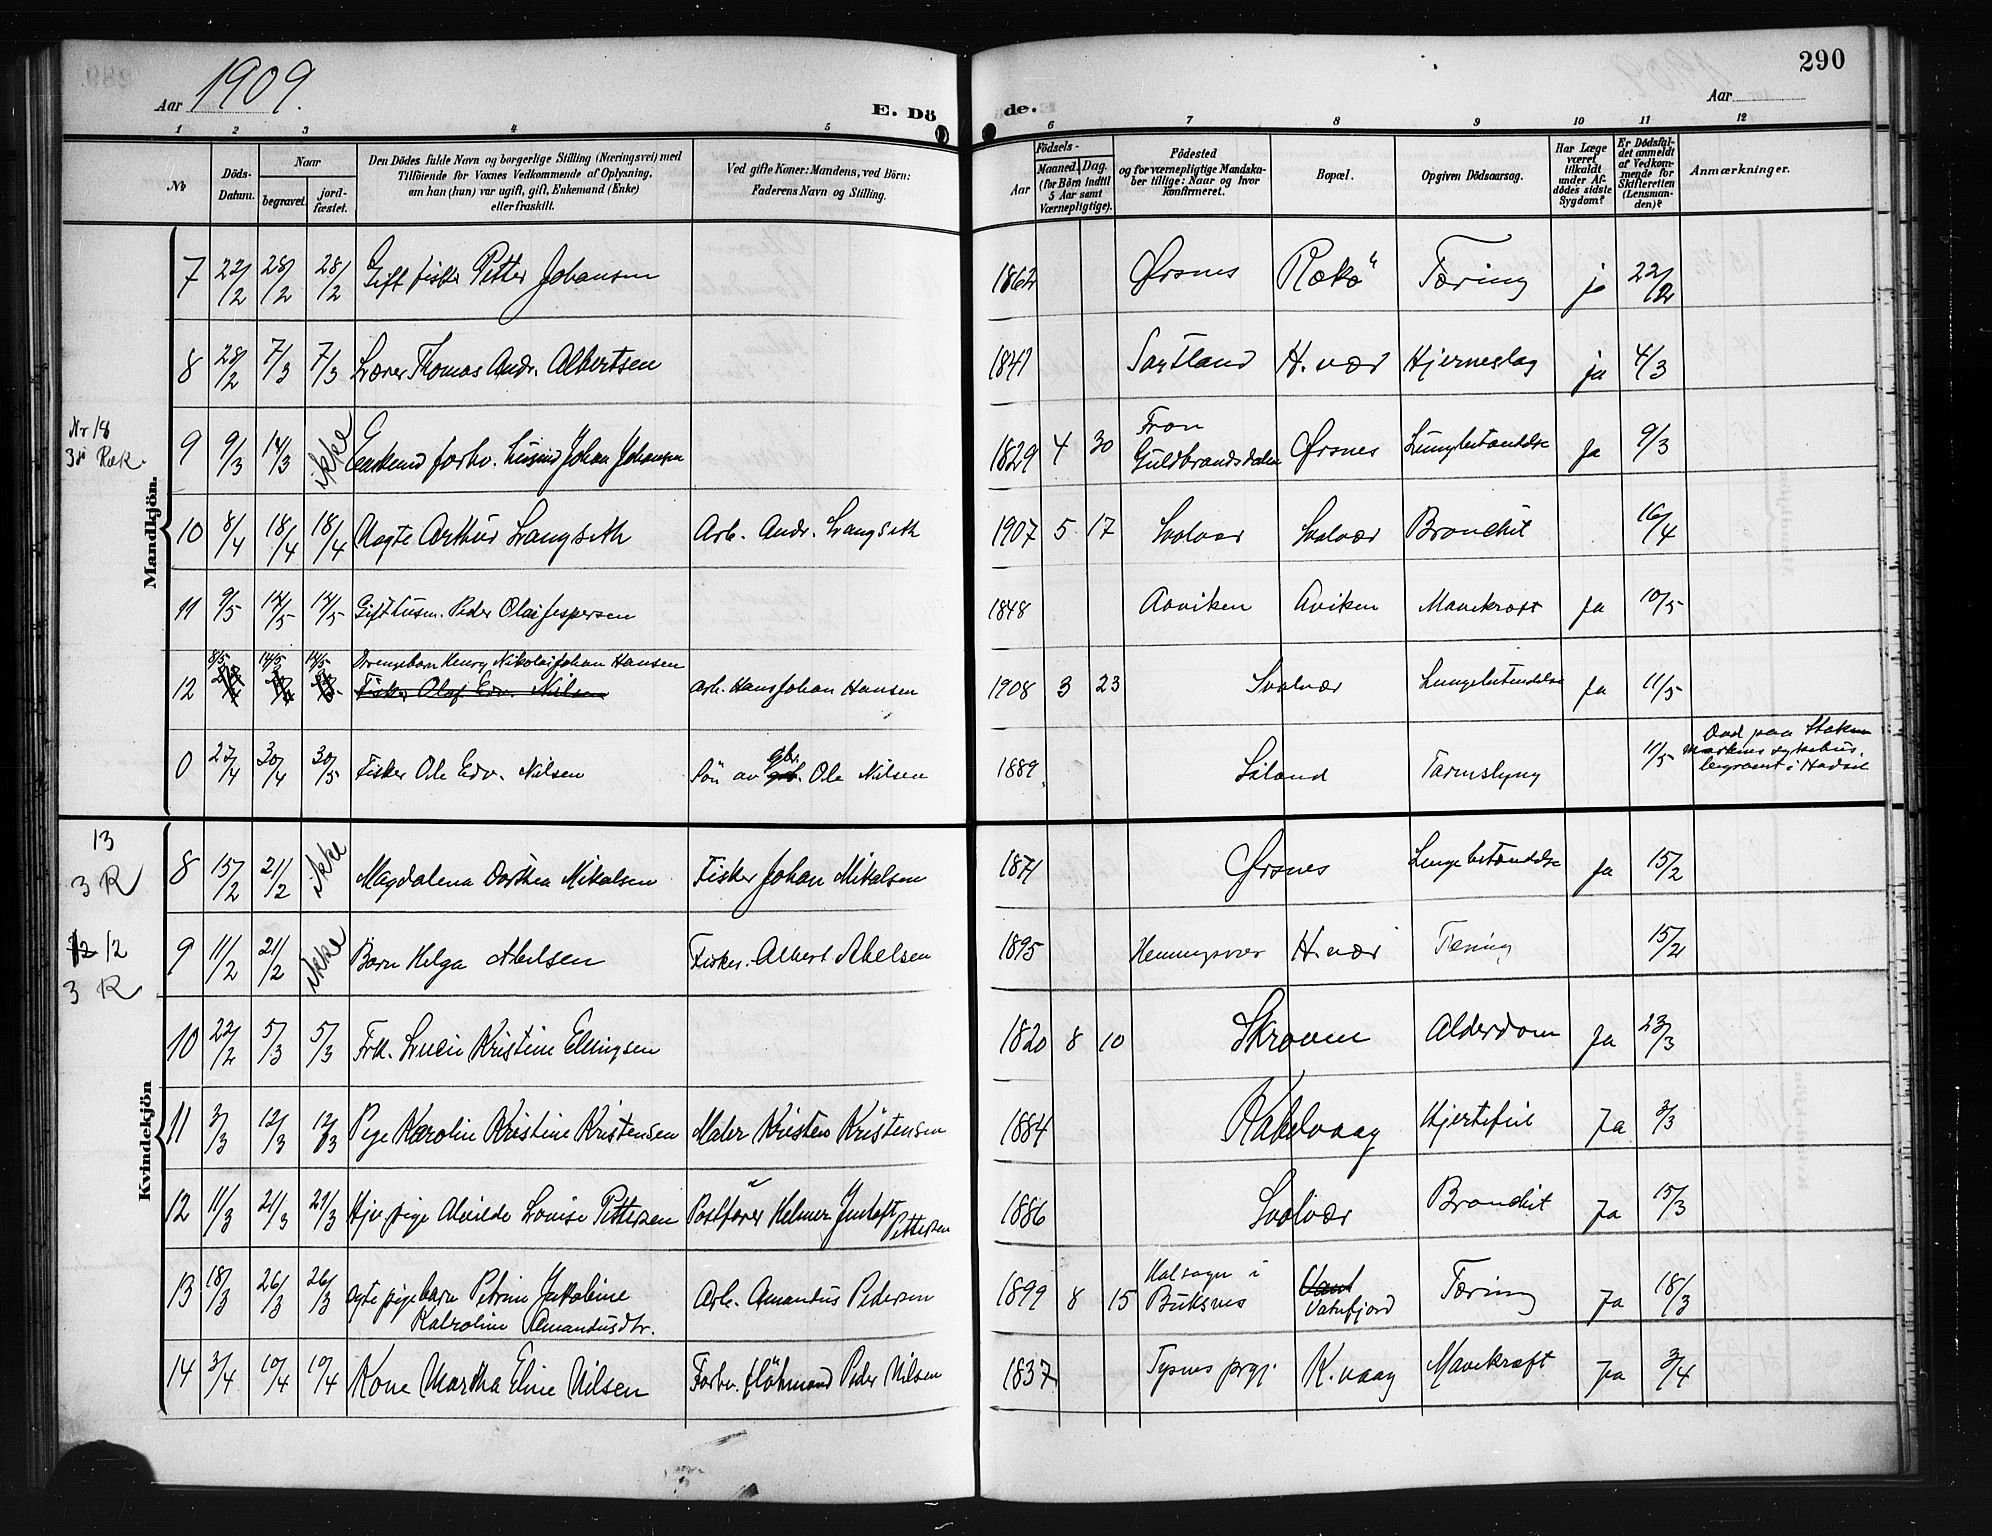 290
Aar 1909.
E. Dö
de.
Aar
1 2 3 4 5 6 7 8 9 10 11 12
No
Döds-Datum.
Naar
begravet.
jord-fæstet.
Den Dödes fulde Navn og borgerlige Stilling (Næringsvei) med
Tilföiende for Voxnes Vedkommende af Oplysning,
om han (hun) var ugift, gift, Enkemand (Enke)
eller fraskilt.
Ved gifte Koner: Mandens, ved Börn:
Faderens Navn og Stilling.
Födsels-
Aar
Maaned. Dag.
(for Börn indtil
5 Aar samt
Værnepligtige).
Födested
og for værnepligtige Mandska-
ber tillige: Naar og hvor
konfirmeret.
Bopæl.
Opgiven Dödsaarsag.
Har Læge
været
tilkaldt
under Af-
dödes sidste
Sygdom?
Er Dödsfal-
det anmeldt
af Vedkom-
mende for
Skifteretten
(Lensman-
den)?
Anmærkninger.
Mandkjön.
7 22/2 28/2 28/2 Gift fisker Petter Johansen 1862 Örsnes Rækö Tæring ja 22/2
8 28/2 7/3 7/3 Lærer Thomas Andr. Albertsen 1847 Saltland H.vær Hjerneslag ja 4/3
Nr 18
3die Ræk.
9 9/3 14/3 ikke Enkemd forhv. husmd Johan Johansen 1829 4 30 Fron Guldbrandsdalen Örsnes Lungebetændelse Ja 9/3
10 8/4 18/4 18/4 Ægte Arthur Langseth Arb. Andr. Langseth 1907 5 17 Svolvær Svolvær Bronchit 16/4
11 9/5 14/5 14/5 Gift husm. Peder Olai Jespersen 1848 Aaviken Aviken Mavekræft Ja 10/5
12 8/5 14/5 14/5 Drengebarn Henry Nikolai Johan Hansen Arb. Hans Johan Hansen 1908 3 23 Svolvær Lungebetændelse Ja 11/5
Fisker Olaf Edv. Nilsen
0 27/4 30/4 30/5 Fisker Ole Edv. Nilsen Sön av gbr. Ole Nilsen 1889 Liland Tarmslyng 11/5 Död paa Stokmarknes sykehus, begravet i Hadsel
Kvindekjön
13
3 R
8 15/2 21/2 ikke Magdalena Dorthea Mikalsen Fisker Johan Mikalsen 1871 Örsnes Lungebetændelse Ja 15/2
12
3 R
9 11/2 21/2 ikke Barn Helga Abelsen Fisker Albert Abelsen 1895 Henningsvær H.vær Tæring 15/2
10 22/2 5/3 5/3 Frk. Lucie Kristine Ellingsen 1820 8 10 Skroven Alderdom Ja 23/3
11 3/3 12/3 12/3 Pige Karoline Kristine Kristensen Maler Kristen Kristensen 1884 Kabelvaag Hjertefeil Ja 3/3
12 11/3 21/3 21/3 Hjv. pige Alvilde Lovise Pettersen Postförer Helmer Gustaf Pettersen 1886 Svolvær Bronchit Ja 15/3
13 18/3 26/3 26/3 Ægte pigebarn Petrine Jakobine Arb. Amandus Pedersen 1899 8 15 Halsogn i Buksnes Vatnfjord Tæring Ja 18/3
Kalroline Amandusdtr.
14 3/4 10/4 10/4 Kone Martha Eline Nilsen Forhv. flöthmand Peder Nilsen 1837 Tysnes prgj. K.vaag Mavekræft Ja 3/4